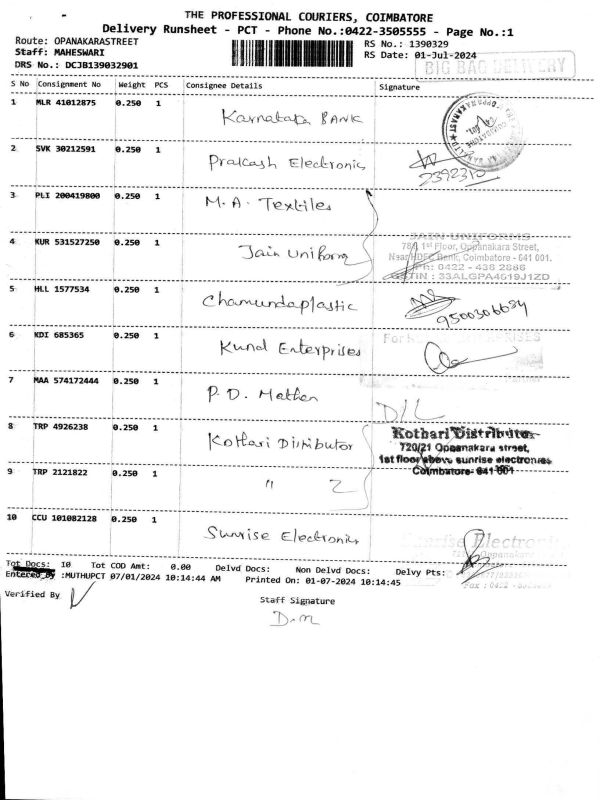 THE PROFESSIONAL COURIERS, COIMBATORE
Delivery Runsheet - PCT - Phone No.:0422-3505555 - Page No.:1
Route: OPANAKARASTREET
RS No.: 1390329
Staff: MAHESWARI
RS Date: 01-Jul-2024
DRS No.: DCJB139032901
BIG BAG DELIVERY
S No Consignment No Weight PCS Consignee Details Signature
1 MLR 41012875 0.250 1 Karnataka BANK
2 SVK 30212591 0.250 1 Prakash Electronics
2392310
3 PLI 200419800 0.250 1 M.A. Textiles
4 KUR 531527250 0.250 1 Jain Uniform
JAIN UNIFORMS
1st Floor, Oppanakara Street,
Near HDFC Bank, Coimbatore - 641 001.
Ph: 0422 - 438 2866
GSTIN : 33ALGPA4619J1ZD
5 HLL 1577534 0.250 1 Chamundaplastic
9500306634
6 KDI 685365 0.250 1 Kunal Enterprises
7 MAA 574172444 0.250 1 P.D. Mathen
D/L
8 TRP 4926238 0.250 1 Kothari Distributor
Kothari Distributor
720/21 Oppanakara street,
1st floor above sunrise electronics
Coimbatore- 641 001
9 TRP 2121822 0.250 1 " 2
10 CCU 101082128 0.250 1 Sunrise Electronics
Sunrise Electronics
Tot Docs: 10 Tot COD Amt: 0.00 Delvd Docs: Non Delvd Docs: Delvy Pts:
Entered By :MUTHUPCT 07/01/2024 10:14:44 AM Printed On: 01-07-2024 10:14:45
Verified By
Staff Signature
D.M